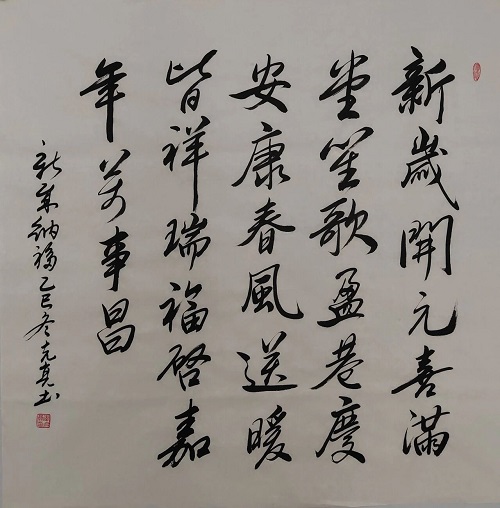 新歲開元喜滿
堂笙歌盈巷慶
安康春風送暖
皆祥瑞福啓嘉
年萬事昌
新年納福乙巳冬克真书